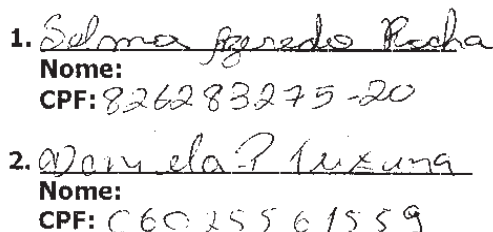 1. Selma Azeredo Rocha
Nome:
CPF: 826283275-20
2. Daniela P
Nome:
CPF: 06025561559